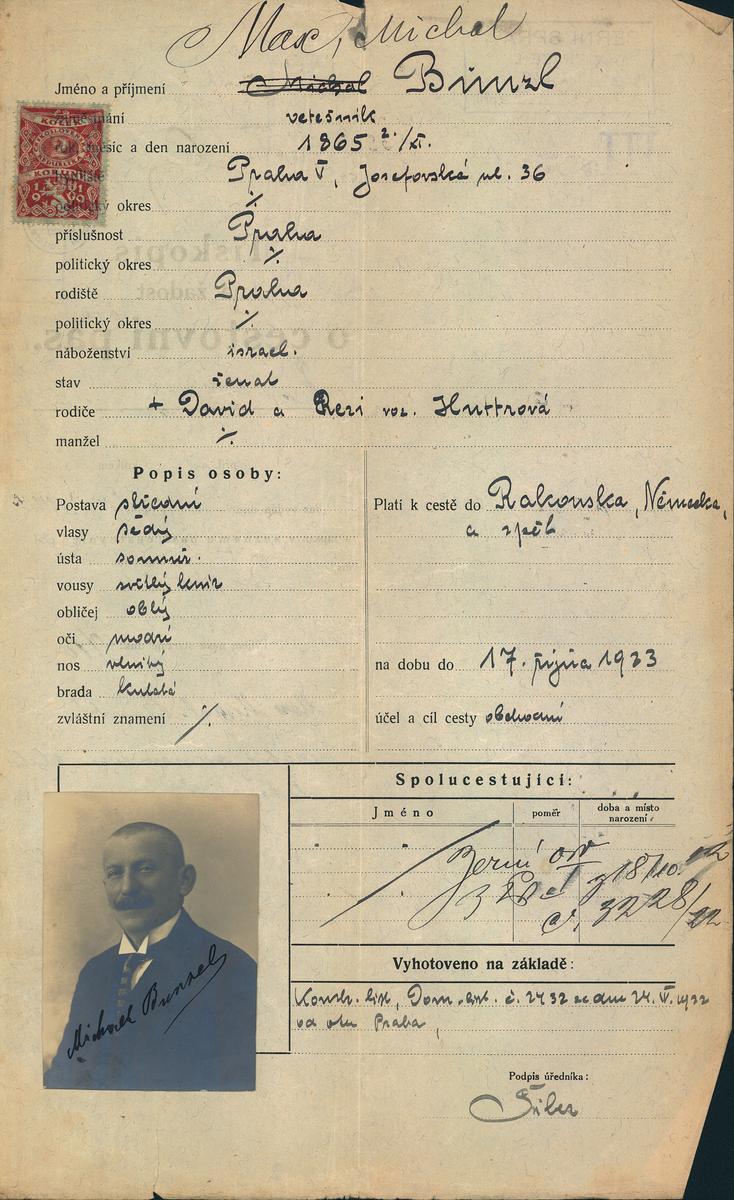 Max, Michal
Jméno a příjmení Michal Bunzl
zaměstnání vetešník
rok, měsíc a den narození 1865 2./XI.
bydliště Praha V, Josefovská ul. 36
politický okres ·/.
příslušnost Praha
politický okres ·/.
rodiště Praha
politický okres ·/.
náboženství israel.
stav ženat
rodiče + David a Rezi roz. Huttrová
manžel ·/.
Popis osoby:
Postava střední
vlasy šedý
ústa souměr.
vousy světlý knír
obličej oblý
oči modrý
nos
brada kulatá
zvláštní znamení ·/.
Platí k cestě do Rakouska, Německa,
a zpět
na dobu do 17. října 1923
účel a cíl cesty obchodní
Spolucestující:
Jméno poměr doba a místo narození
z 18/10. 22
čj. 3228/22
Vyhotoveno na základě:
Dom. list. č. 2732 ze dne 24. V. 1922
Praha,
Podpis úředníka:
KOLEK
ČESKOSLOVENSKÁ
REPUBLIKA
KORUNA
1 1
19
Michael Bunzel